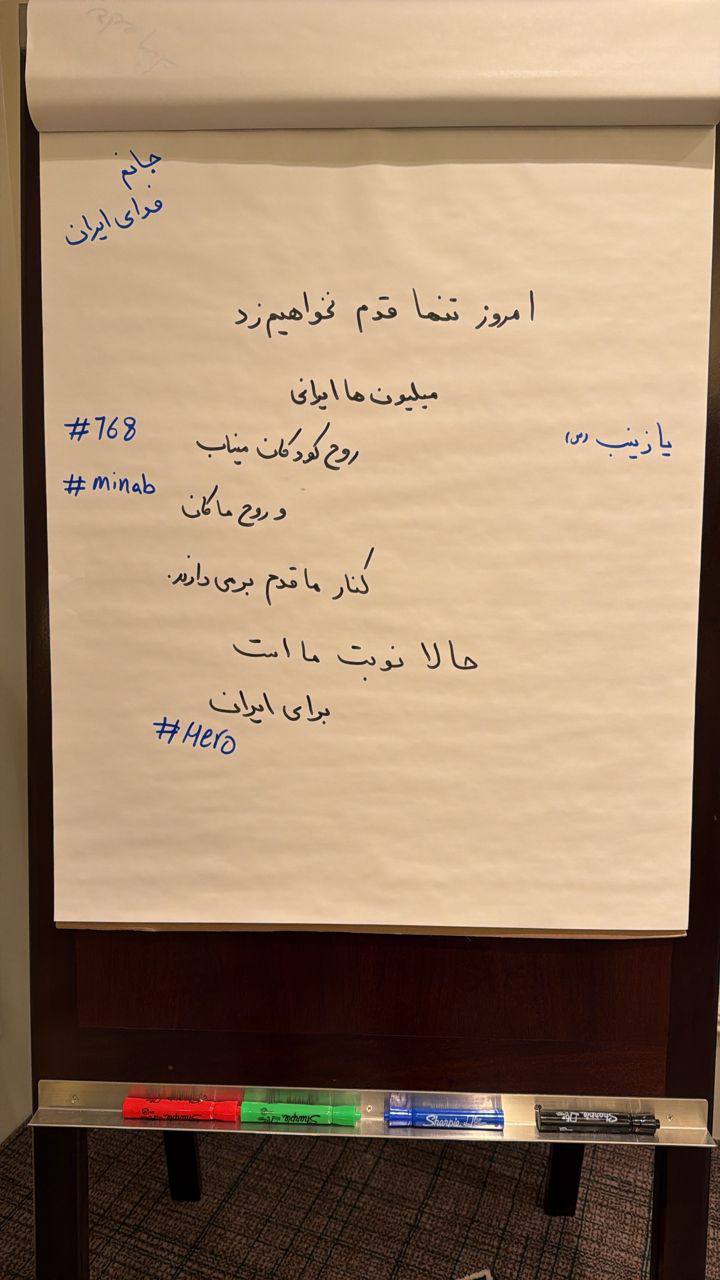 جانم
فدای ایران
امروز تنها قدم نخواهیم زد
میلیون ها ایرانی
روح کودکان میناب
و روح ماکان
کنار ما قدم برمی دارند.
حالا نوبت ما است
برای ایران
#168
#minab
#Hero
یا زینب (س)
Sharpie
Sharpie
Sharpie
Sharpie